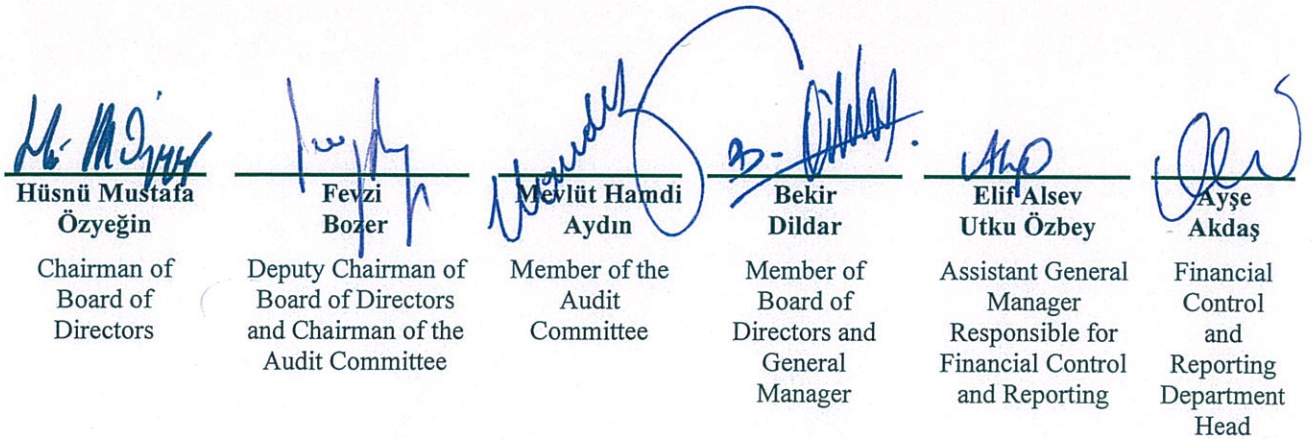 Hüsnü Mustafa
Özyeğin
Chairman of
Board of
Directors
Fevzi
Bozer
Deputy Chairman of
Board of Directors
and Chairman of the
Audit Committee
Mevlüt Hamdi
Aydın
Member of the
Audit
Committee
Bekir
Dildar
Member of
Board of
Directors and
General
Manager
Elif Alsev
Utku Özbey
Assistant General
Manager
Responsible for
Financial Control
and Reporting
Ayşe
Akdaş
Financial
Control
and
Reporting
Department
Head